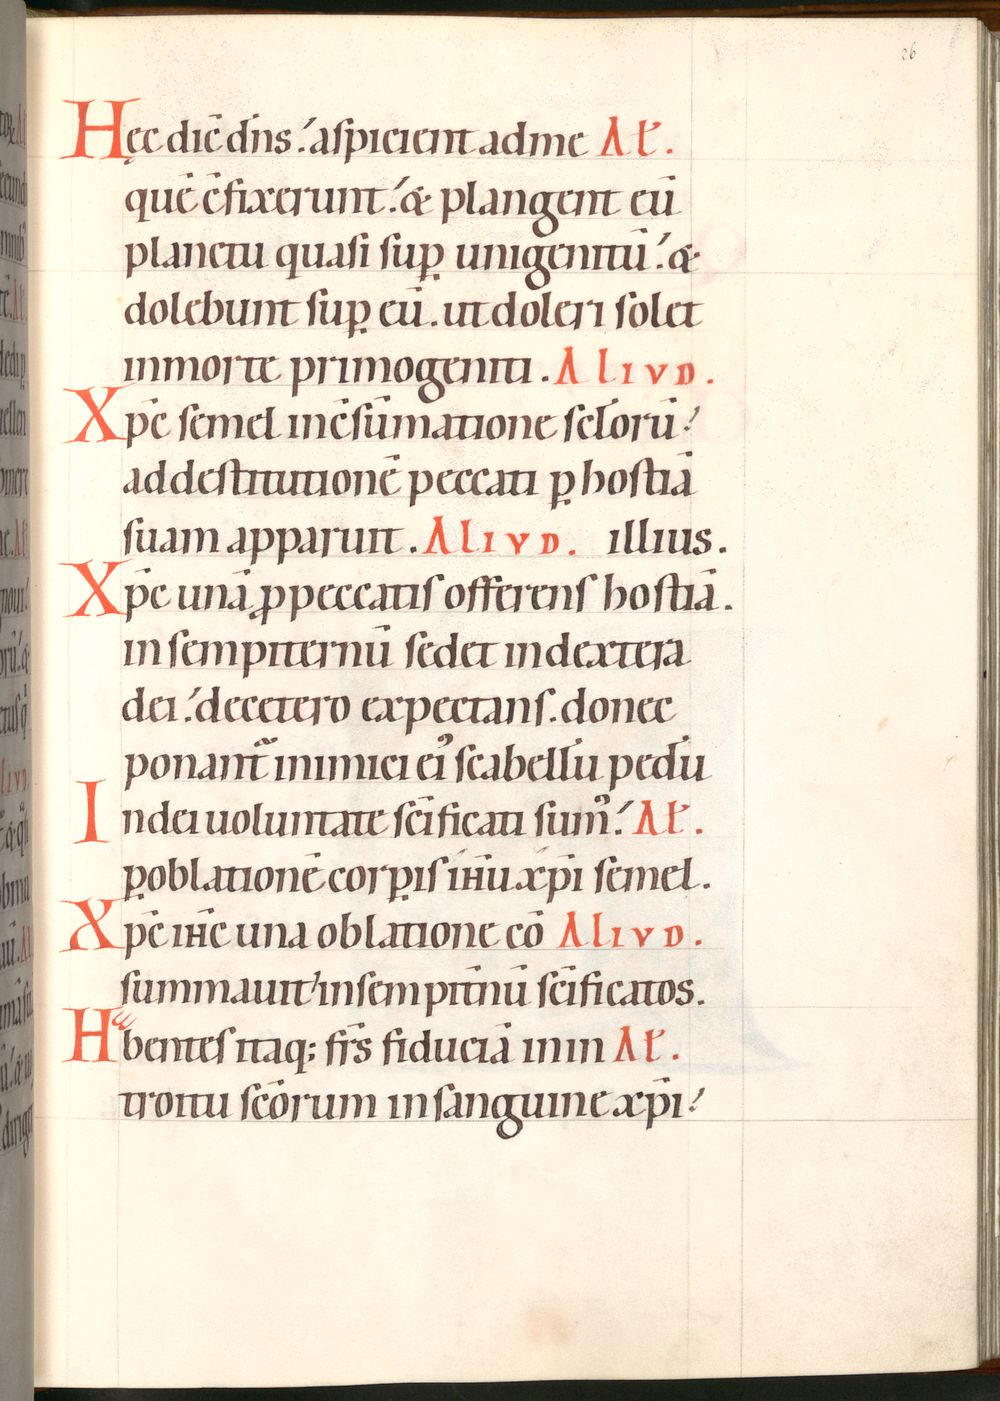 26
Hęc dic̄ dn̄s. aspicient ad me Al̄.
quē c̄fixerunt. & plangent eū
planctu quasi suꝑ unigenitū. &
dolebunt suꝑ eū. ut doleri solet
in morte primogeniti. ALIVD.
Xp̄c semel in c̄sūmatione sc̄loꝛū
ad destitutionē peccati ꝑ hostiā
suam apparuit. ALIVD. illius.
Xp̄c unā ꝓ peccatis offerens hostiā.
in sempiternū sedet in dextera
dei. de cetero expectans. donec
ponant᷑ inimici ei᷒ scabellū pedū
In dei uoluntate sc̄ificati sum᷒. Al̄.
ꝑ oblationē corꝑis ih̄u xp̄i semel.
Xp̄c ih̄c una oblatione cō ALIVD.
summauit in sempit̄nū sc̄ificatos.
Habentes itaq; fr̄s fiduciā in in Al̄.
troitu sc̄orum in sanguine xp̄i